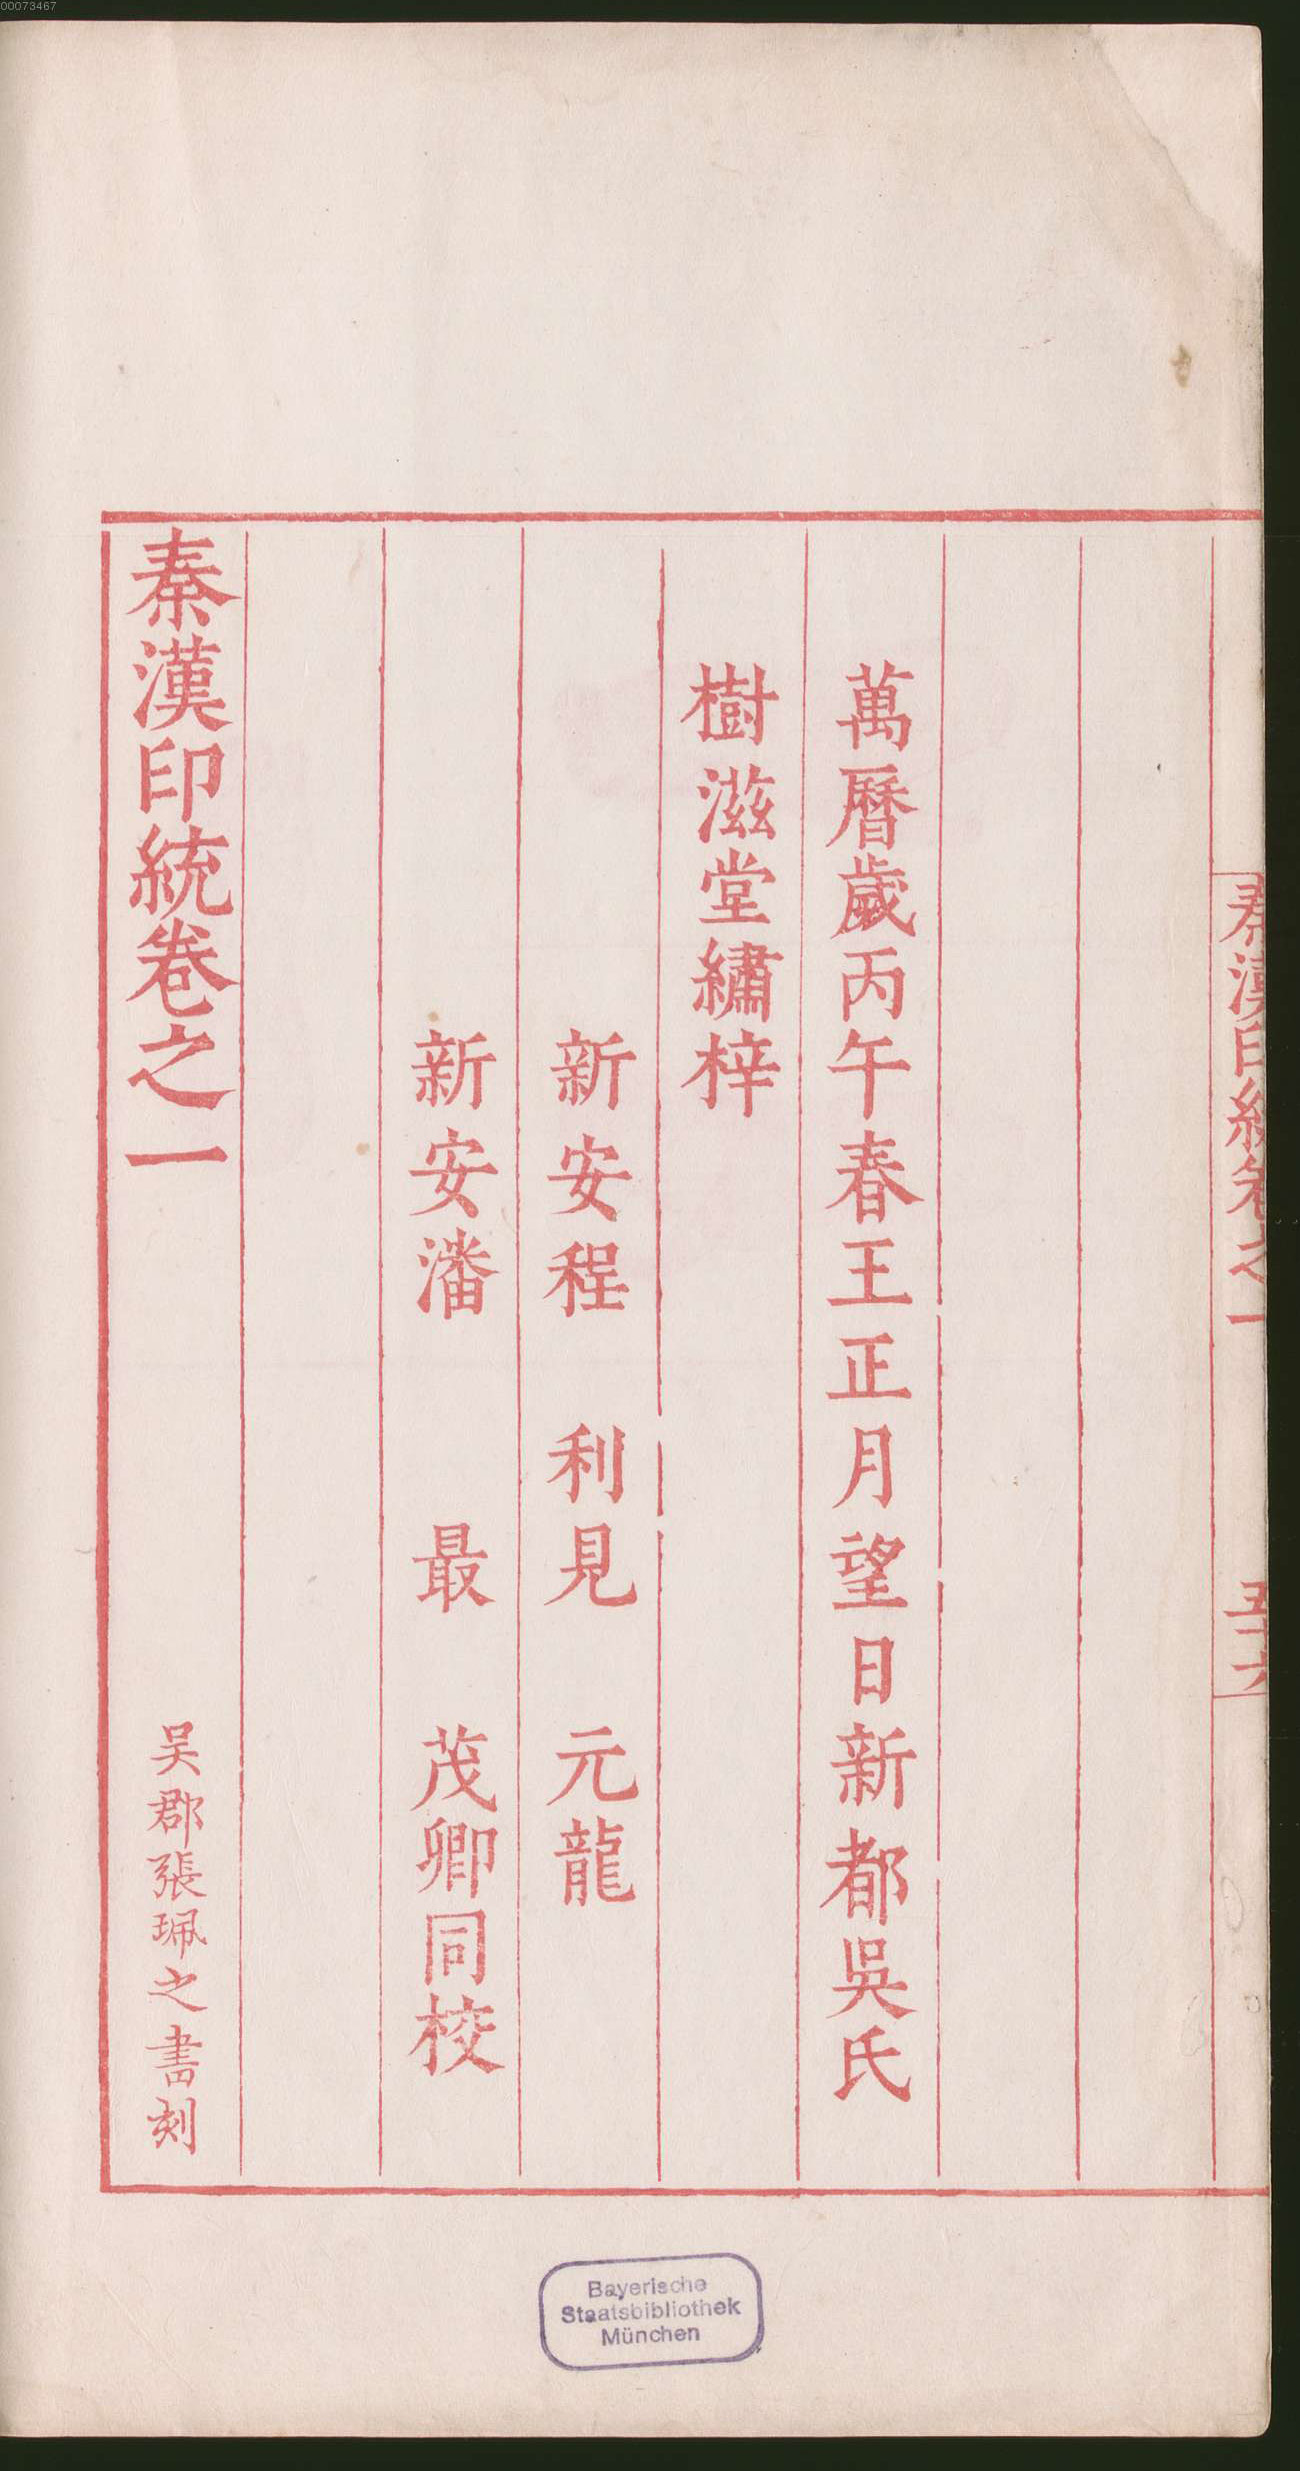 00073467
秦漢印統卷之一
五十六
萬曆歲丙午春王正月望日新都吳氏
樹滋堂繡梓
新安程 利見 元龍
新安潘 最 茂卿同校
秦漢印統卷之一
吴郡張珮之書刻
Bayerische
Staatsbibliothek
München